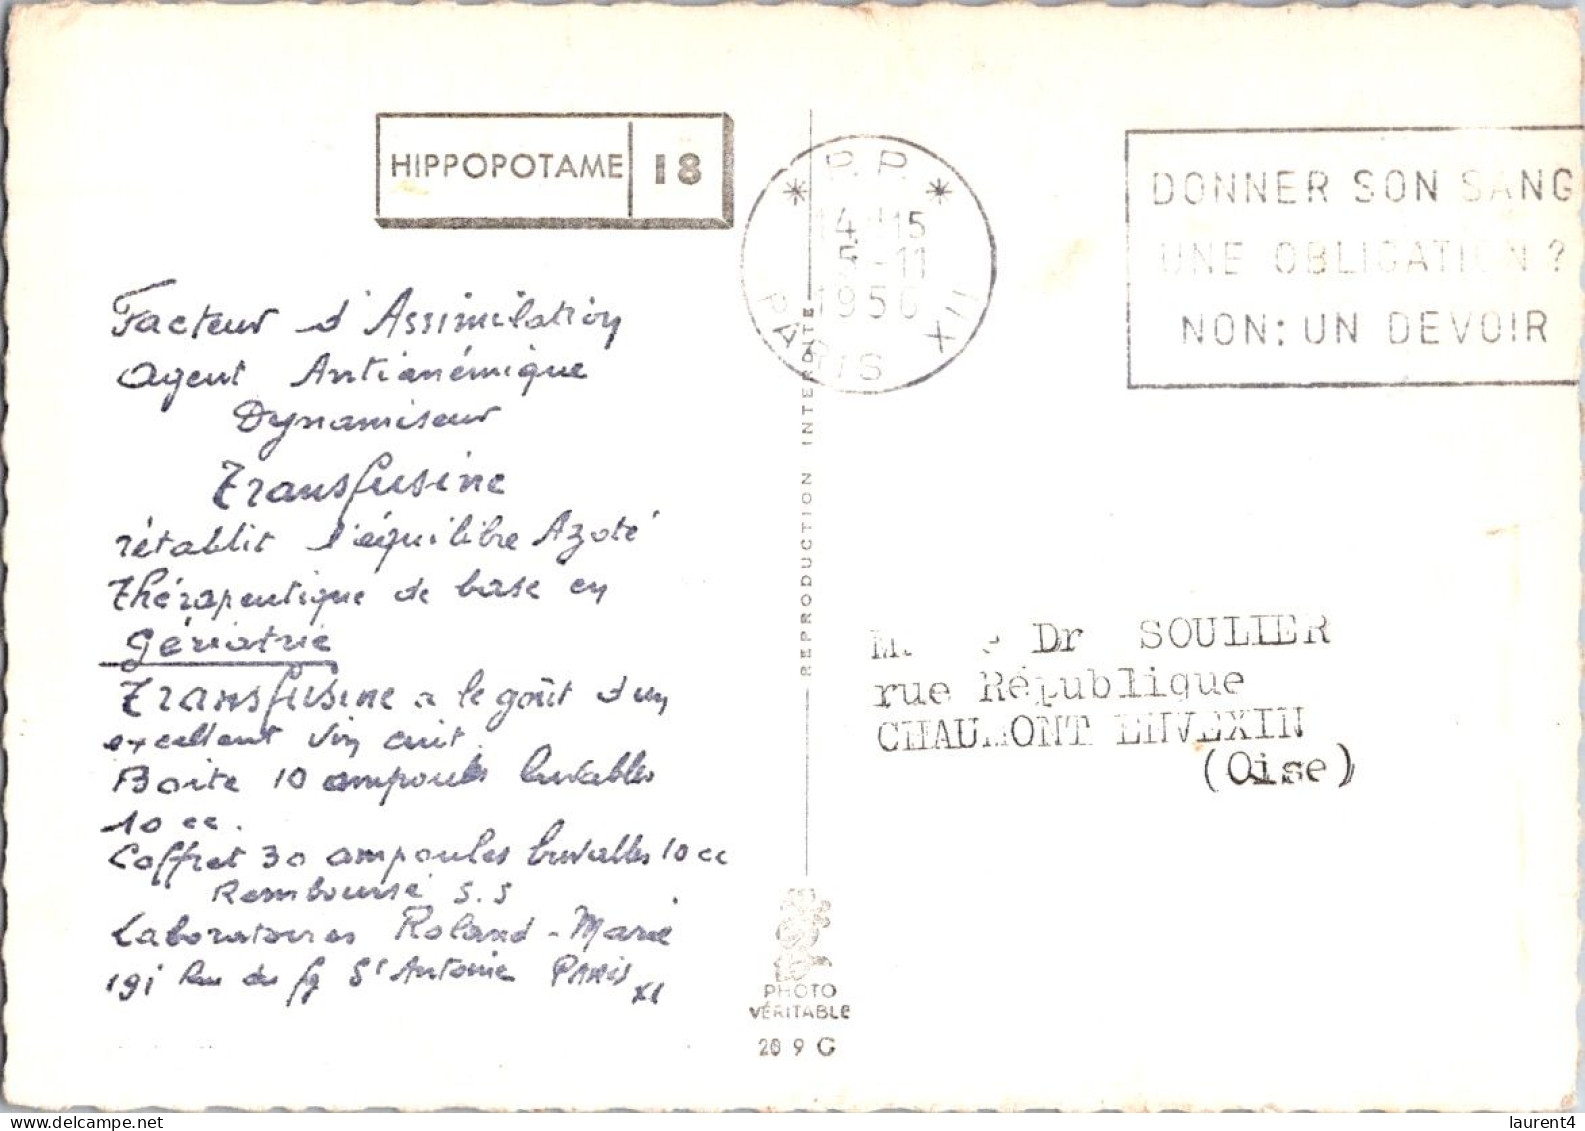 HIPPOPOTAME 18
* P.P. *
14 15
5-11
1956
PARIS XII
DONNER SON SANG
UNE OBLIGATION ?
NON: UN DEVOIR
Facteur d'Assimilation
Agent Antianémique
Dynamiseur
Transfusine
rétablit l'équilibre Azoté
thérapeutique de base en
gériatrie
Transfusine a le goût d'un
excellent vin cuit.
Boite 10 ampoules buvables
10 cc.
Coffret 30 ampoules buvables 10 cc
Remboursé S.S
Laboratoires Roland-Marie
191 Rue du fg St Antoine PARIS XI
REPRODUCTION INTERDITE
PHOTO
VÉRITABLE
289 G
Dr SOULIER
rue République
CHAUMONT ENVEXIN
(Oise)
delcampe.net
laurent4